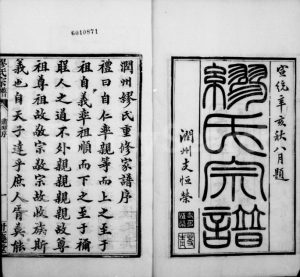 宣統辛亥秋八月題
繆氏宗譜
潤州支恒榮
6010871
潤州繆氏重修家譜序
禮曰自仁率親等而上之至于
祖自義率祖順而下之至于禰
聖人之道不外親親親親故尊
祖尊祖故敬宗敬宗故收族斯
義也自天子達乎庶人胥莫能
繆氏宗譜